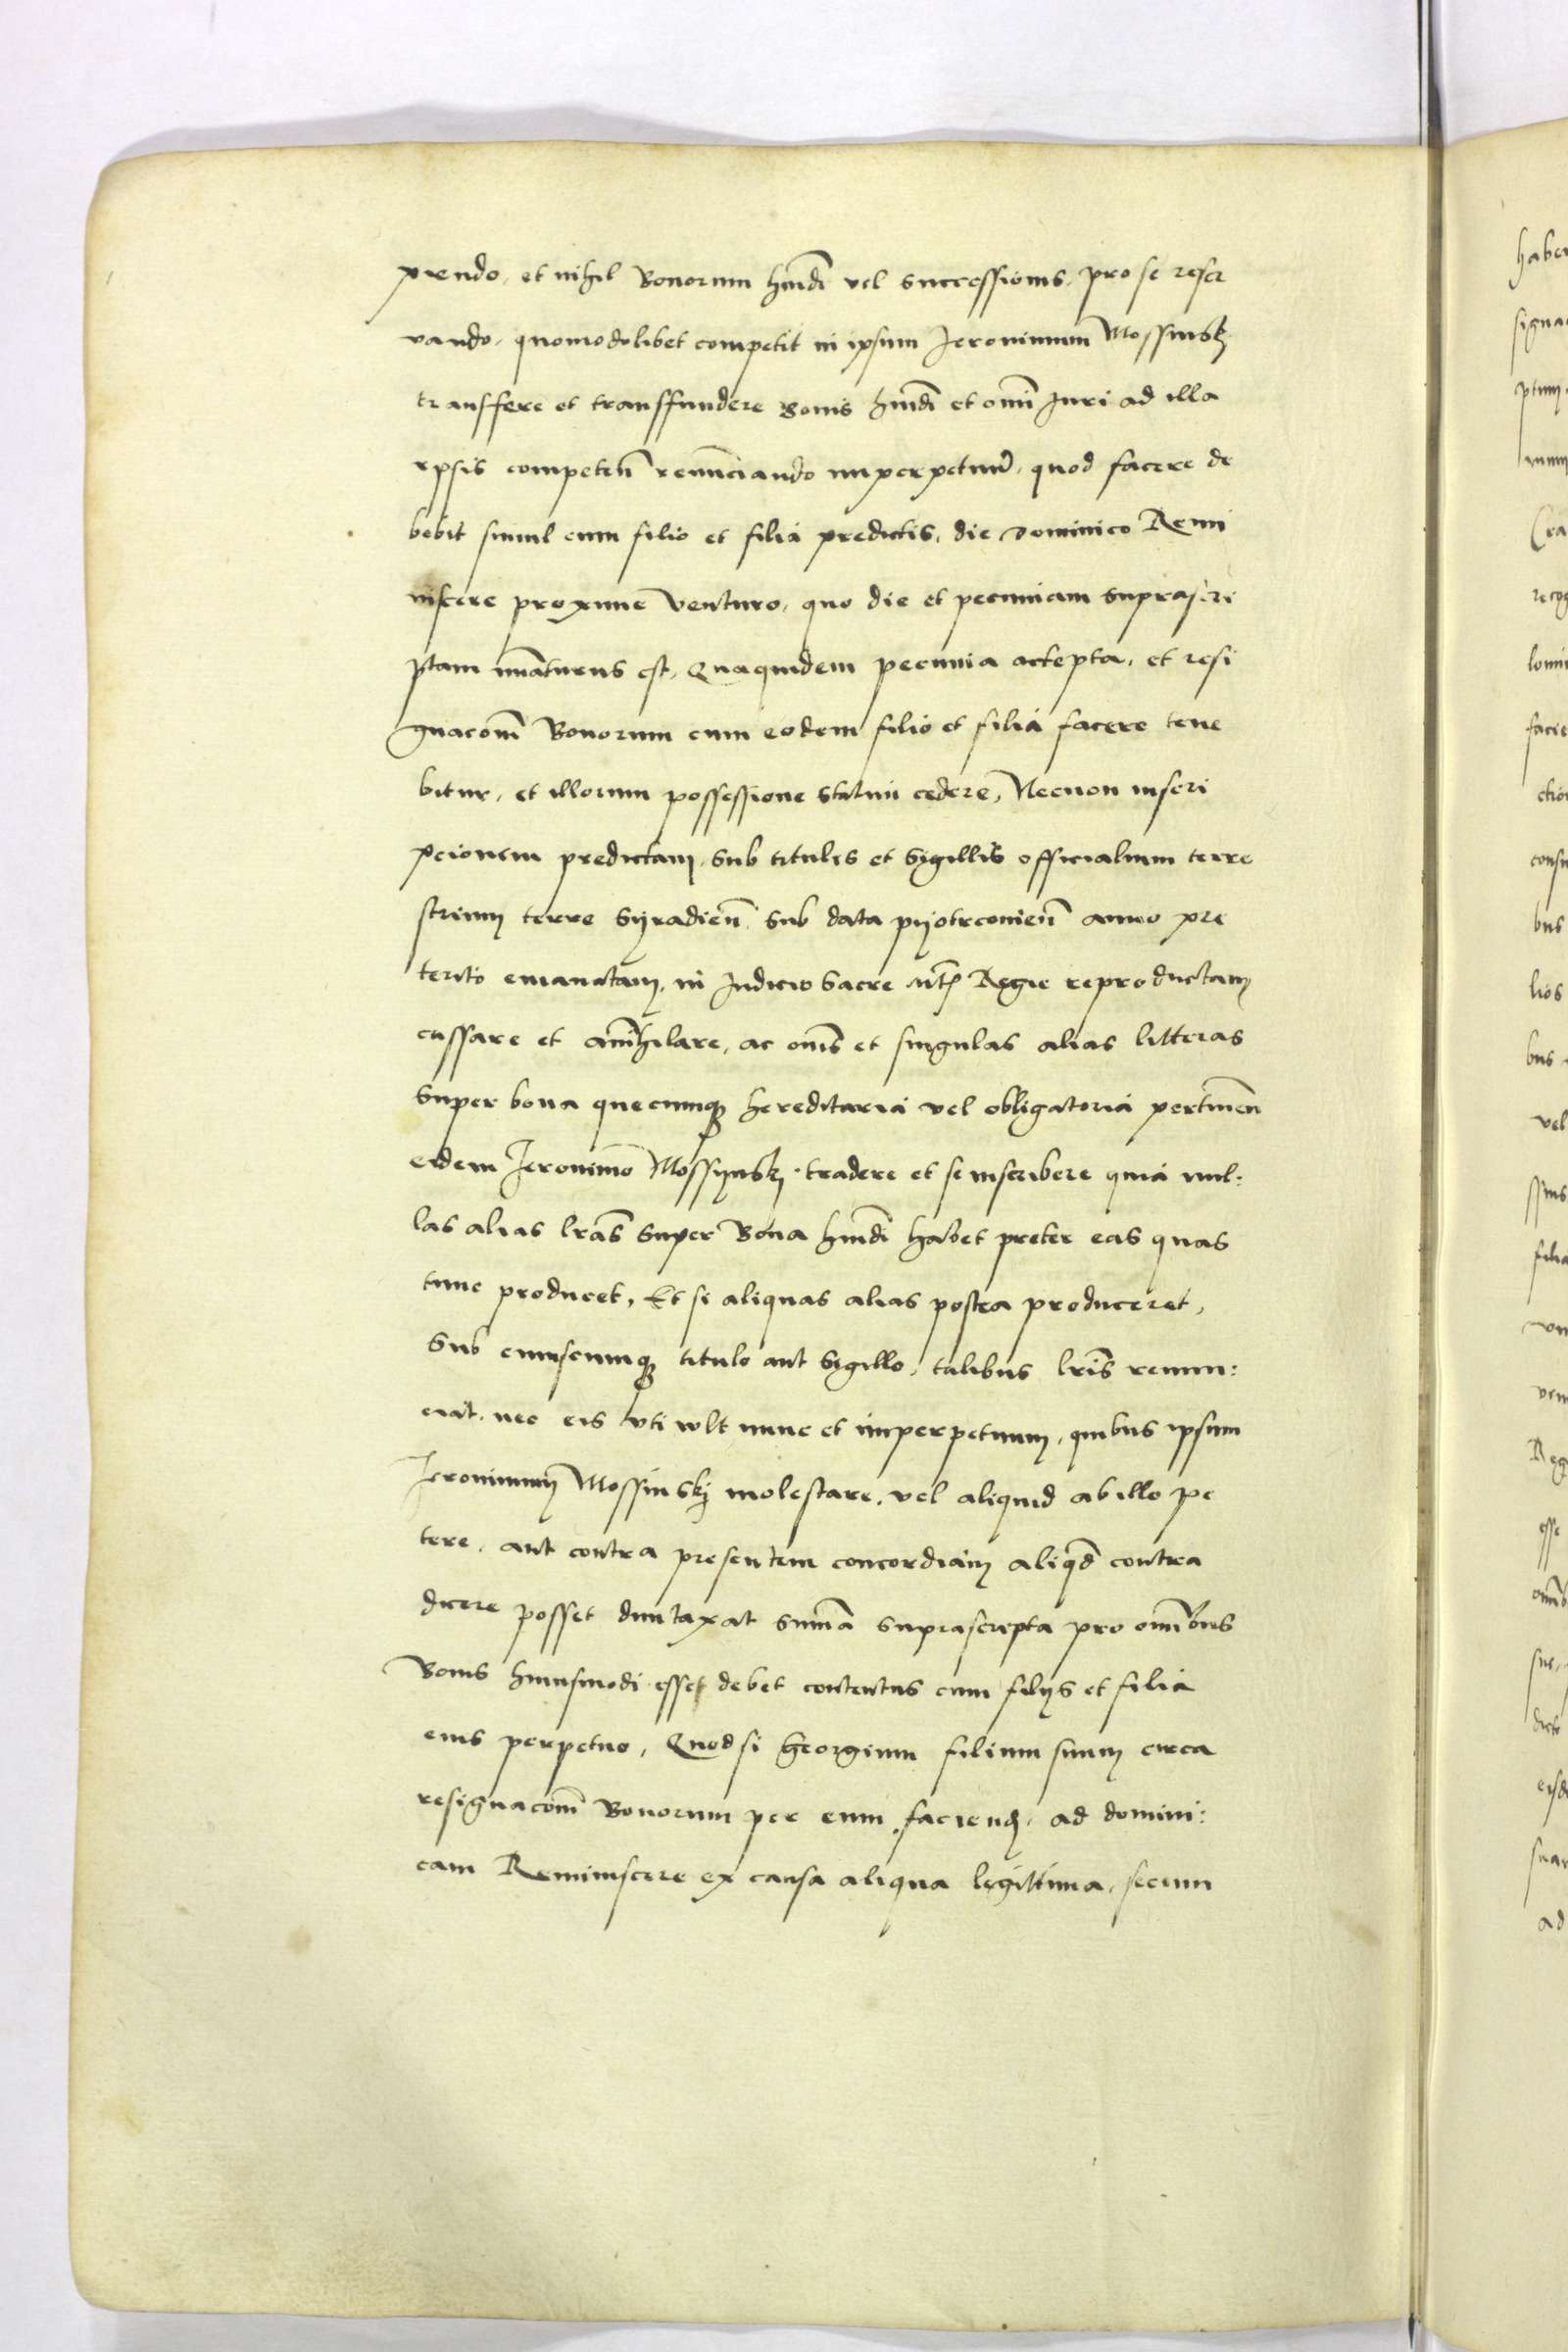 pendo, et nihil Bonorum hm̄di vel successionis, pro se reser
vando, quomodolibet competit in ipsum Jeronimum Mossinskj
transfere et transfundere Bonis hm̄di et om̄i Juri ad illa
ipsis competen̄ renunciando imperpetuū, quod facere de
bebit simul cum filio et filia predictis, die dominico Remi
niscere proxime venturo, quo die et pecuniam suprascri
ptam nūaturus est, Quaquidem pecunia accepta, et resi
gnacōm̄ Bonorum cum eodem filio et filia facere tene
bitur, et illorum possessione statim cedere, Necnon inscri
pcionem predictam, sub titulis et sigillis officialium terre
strium terre Syradien̄ sub data pyotrconien̄ anno pre
terito emanatam, in Judicio Sacre Mt̄j Regie reproductam
cassare et annihilare, ac om̄s et singulas alias litteras
super bona quecumq; hereditaria vel obligatoria pertinen̄
eidem Jeronimo Mossynskj tradere et se inscribere quia nul:
las alias lrās super Bona hm̄di habet preter eas quas
tunc producet, Et si aliquas alias postea produceret,
Sub cuiuscumq; titulo aut sigillo, talibus lrīs renun:
ciat, nec eis vti wlt nunc et imperpetuum, quibus ipsum
Jeronimum Mossinskj molestare, vel aliquid ab illo pe
tere, aut contra presentem concordiam aliqd̄ contra
dicere posset duntaxat sum̄a suprascripta pro om̄ibus
Bonis huiusmodi esse debet contentus cum filijs et filia
eius perpetuo, Quod si Georgium filium suum circa
resignacōm̄ Bonorum per eum faciend, ad domini:
cam Reminiscere ex causa aliqua legittima, secum